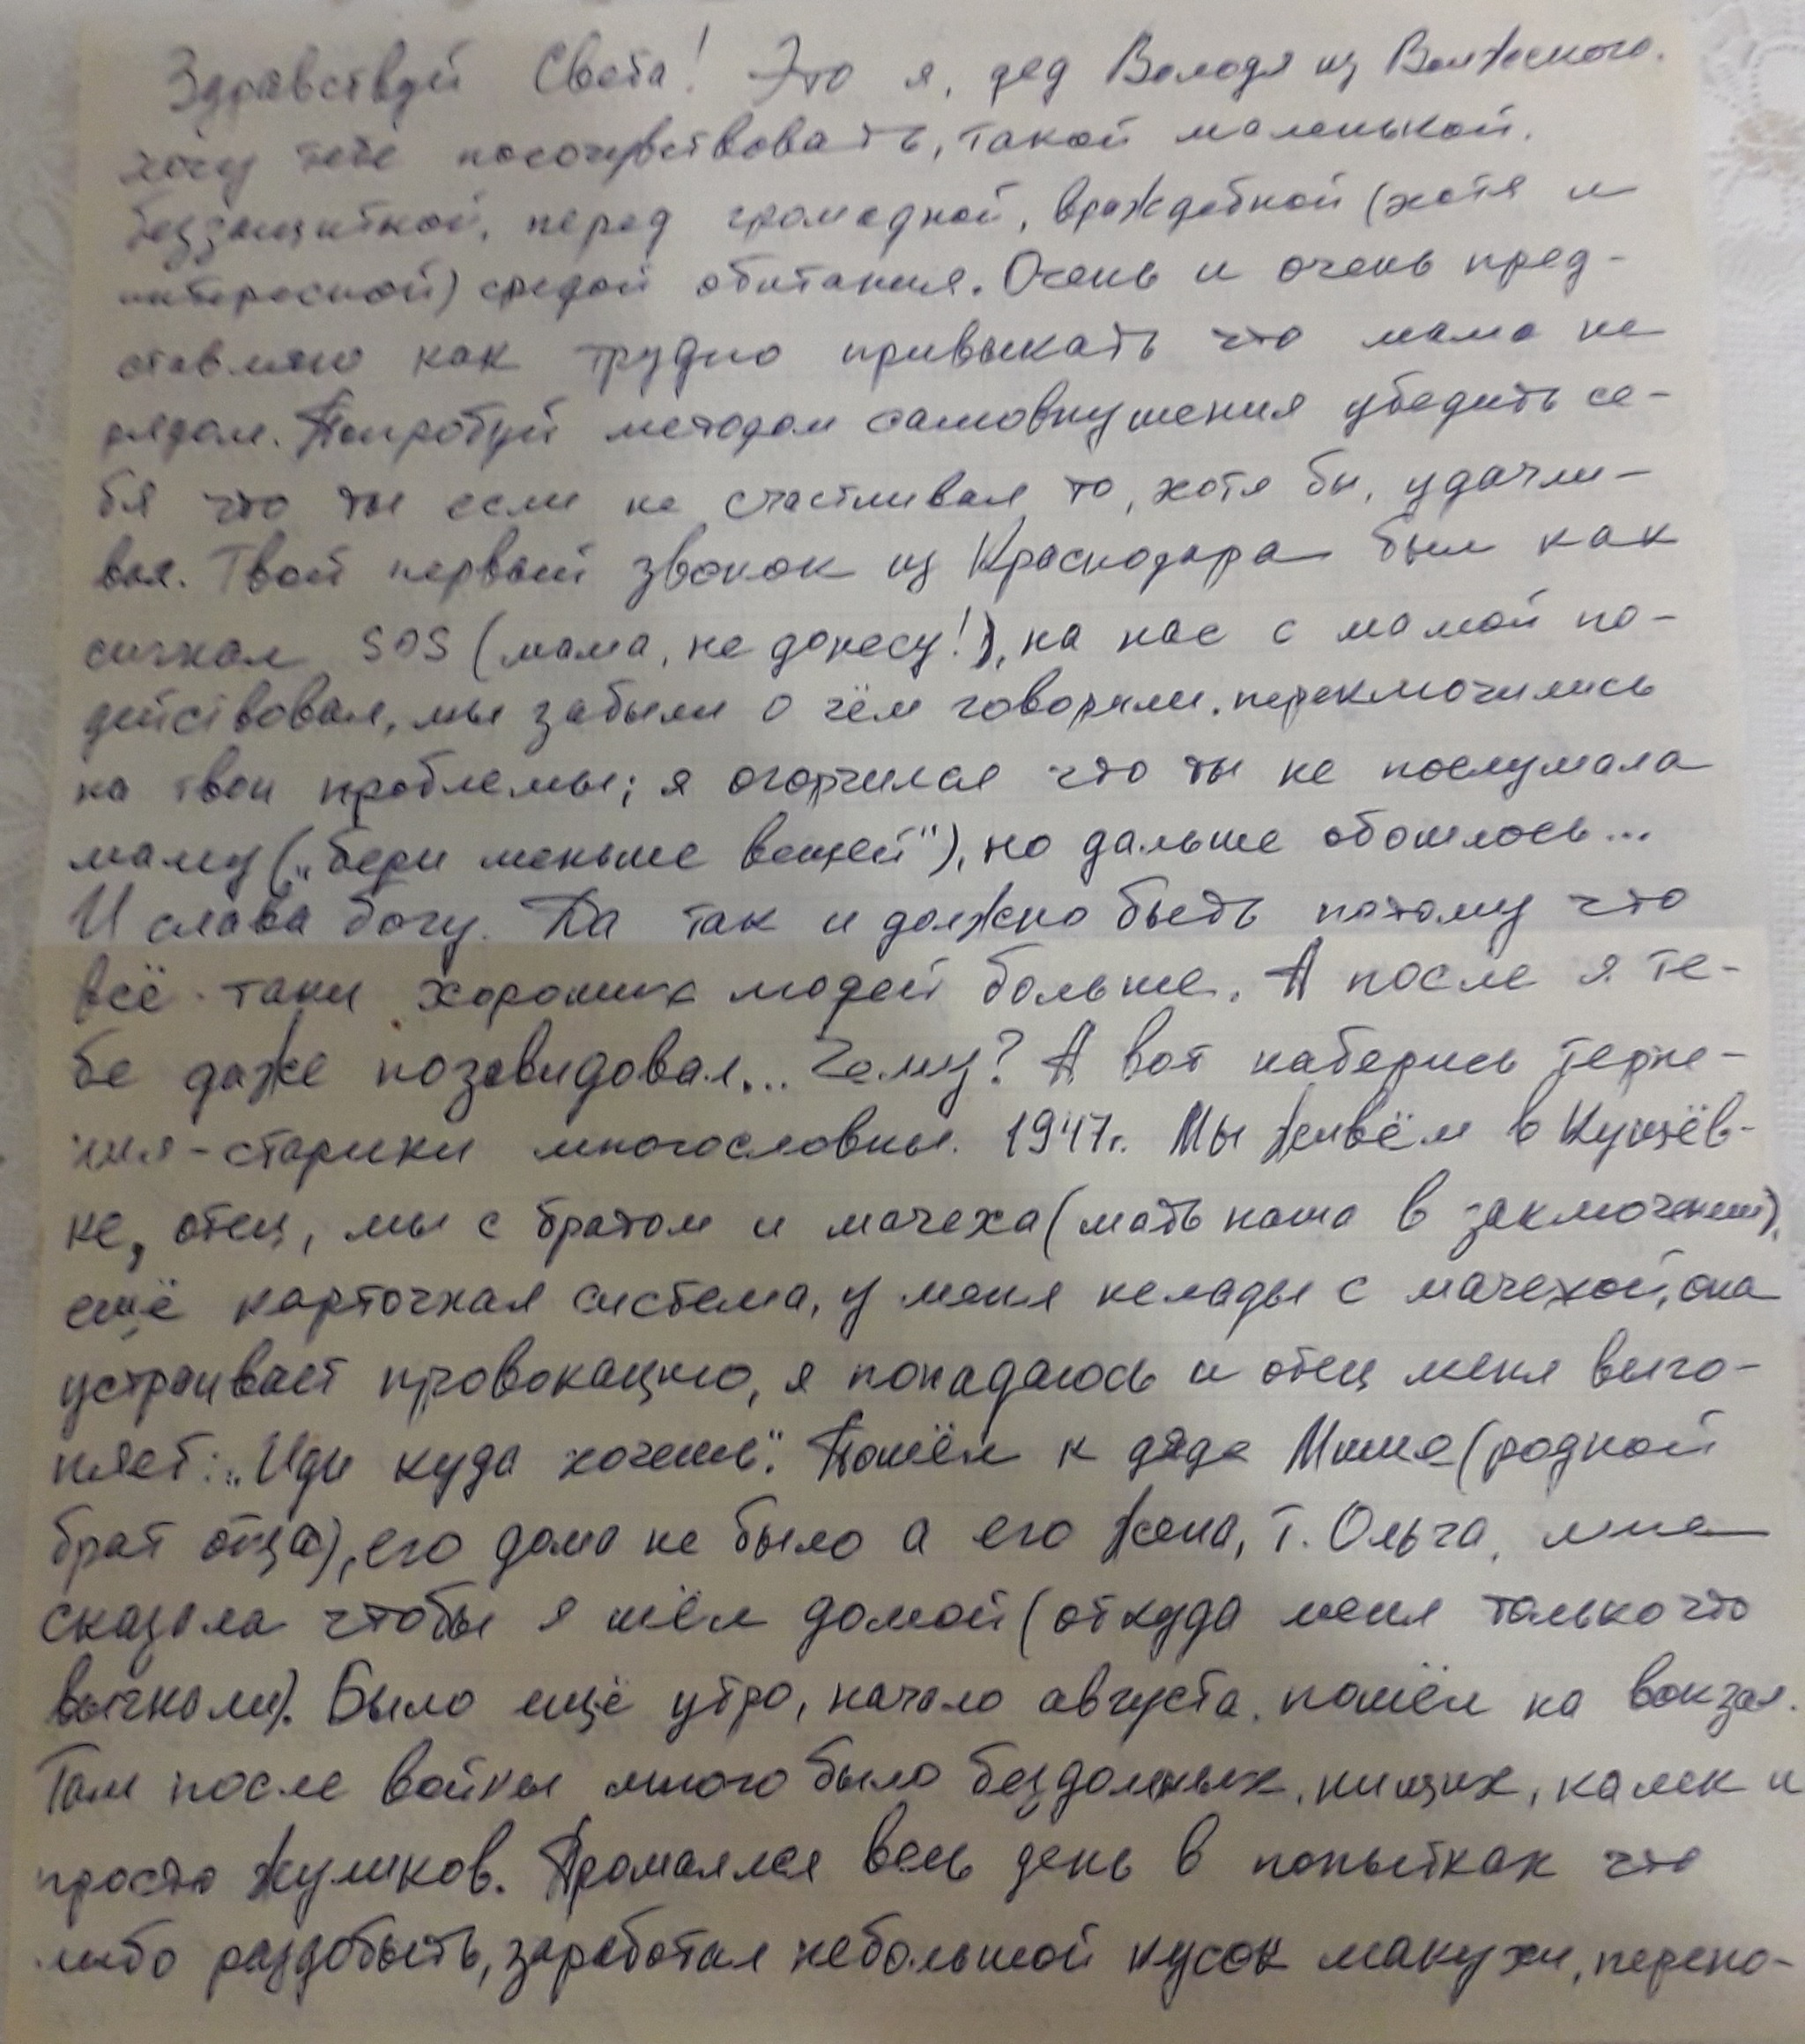 Здравствуй Света! Это я, дед Володя из Волжского.
хочу тебе посочувствовать, такой маленькой,
беззащитной, перед громадной, враждебной (хотя и
интересной) средой обитания. Очень и очень пред-
ставляю как трудно привыкать что мама не
рядом. Попробуй методом самовнушения убедить се-
бя что ты если не счастливая то, хотя бы, удачли-
вая. Твой первый звонок из Краснодара был как
сигнал SOS (мама, не донесу!), на нас с мамой по-
действовал, мы забыли о чём говорили, переключились
на твои проблемы; я огорчился что ты не послушала
маму („бери меньше вещей"), но дальше обошлось...
И слава богу. Да так и должно быть потому что
всё-таки хороших людей больше. А после я те-
бе даже позавидовал... Чему? А вот наберись терпе-
ния-старики многословны. 1947г. Мы живём в Кущёв-
ке, отец, мы с братом и мачеха (мать наша в заключении),
ещё карточная система, у меня нелады с мачехой, она
устраивает провокацию, я попадаюсь и отец меня выго-
няет: „Иди куда хочешь". Пошёл к дяде Мише (родной
брат отца), его дома не было а его жена, т. Ольга, мне
сказала чтобы я шёл домой (откуда меня только что
выгнали). Было ещё утро, начало августа, пошёл на вокзал.
Там после войны много было бездомных, нищих, калек и
просто жуликов. Промаялся весь день в попытках что
либо раздобыть, заработал небольшой кусок макухи, перено-